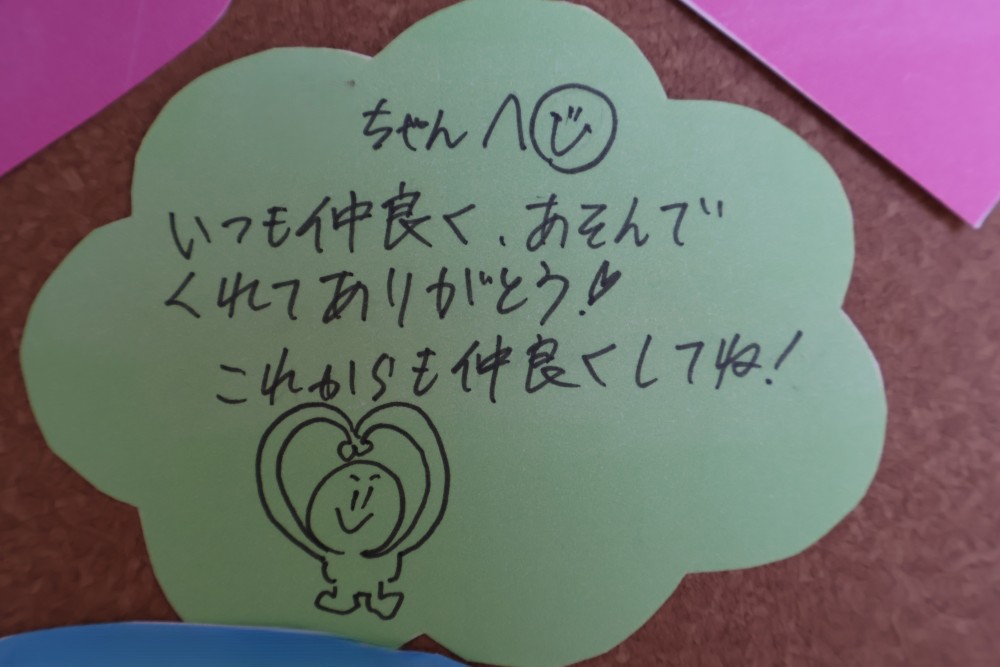 ちゃんへ じ
いつも仲良く、あそんで
くれてありがとう!
これからも仲良くしてね!